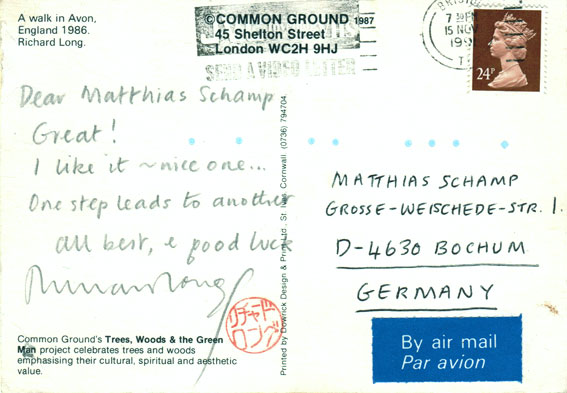 A walk in Avon,
England 1986.
Richard Long.
©COMMON GROUND 1987
45 Shelton Street
London WC2H 9HJ
SEND A VIDEO LETTER
15 NOV
24P
Dear Matthias Schamp
Great!
I like it ~ nice one...
One step leads to another
all best, & good luck
Richard Long
リチャード
ロング
Common Ground's Trees, Woods & the Green
Man project celebrates trees and woods
emphasising their cultural, spiritual and aesthetic
value.
Printed by Dowrick Design & Print Ltd., St. Ives, Cornwall. (0736) 794704.
MATTHIAS SCHAMP
GROSSE-WEISCHEDE-STR. 1.
D-4630 BOCHUM
GERMANY
By air mail
Par avion